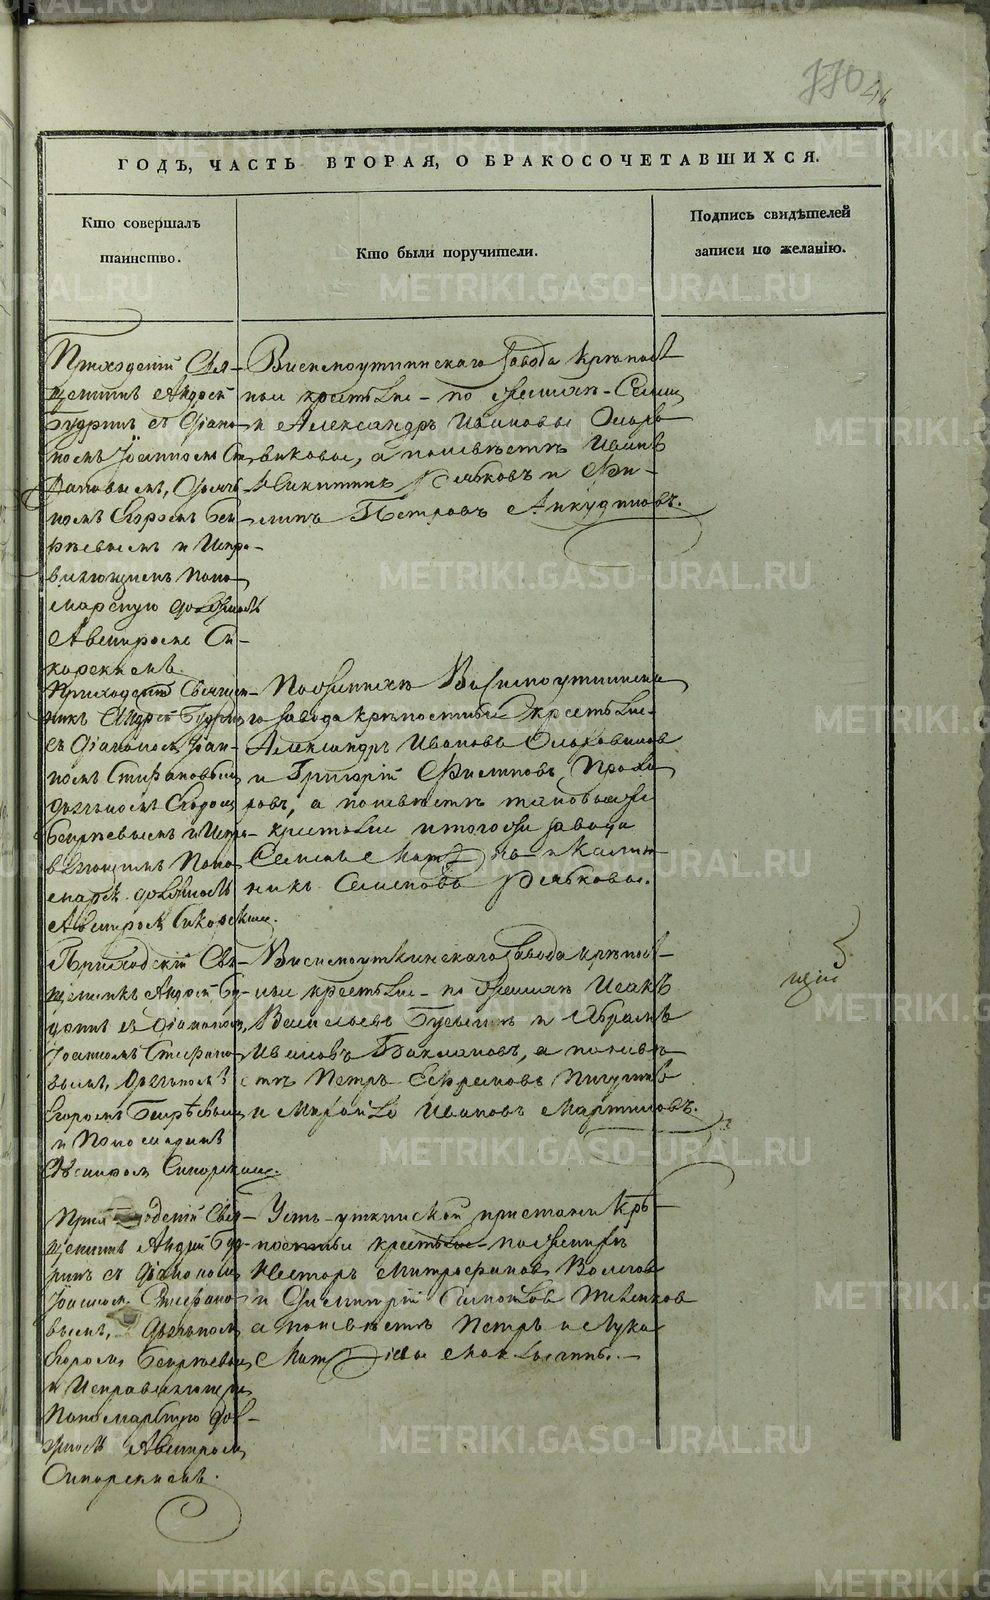 770
46
ГОДЪ, ЧАСТЬ ВТОРАЯ, О БРАКОСОЧЕТАВШИХСЯ.
Кто совершалъ
таинство.
Кто были поручители.
Подпись свидѣтелей
записи по желанію.
Приходскій Свя-
щенникъ Андрей
Будринъ съ Діако-
номъ Іоанномъ Сте-
фановымъ, Дьячь-
комъ Егоромъ
и Испра-
вляющимъ поно-
марскую должность
Авениромъ Си-
корскимъ.
Висимоуткинскаго завода крѣпост
ные крестьяне по женихѣ Семенъ
и Александръ Ивановы Ольхо-
виковы, а по невѣстѣ Иванъ
Никитинъ Рябковъ и Фи-
липъ Петровъ Анкудиновъ.
Приходскій Священ-
никъ Андрей Будринъ
съ Діакономъ Іоан-
номъ Стефановымъ
дьячькомъ Егоромъ
и Испра-
вляющимъ Поно-
марск. должность
Авениромъ Сикорскимъ.
По женихѣ Висимоуткинска
го завода крѣпостные крестьяне
Александръ Ивановъ Ольховиковъ
и Григорій Филиповъ Прохо
ровъ, а по невѣстѣ таковые же
крестьяне итогоже завода
Семенъ Никитинъ и Калин
никъ Семеновъ Рябковы.
Приходскій Свя-
щенникъ Андрей Бу-
дринъ съ Діакономъ
Іоанномъ Стефано-
вымъ, Дьячькомъ
Егоромъ
и Пономаремъ
Авениромъ Сикорскимъ.
Висимоуткинскаго завода крѣпост-
ные крестьяне по женихѣ Исакъ
Васильевъ Гусевъ и Абрамъ
Ивановъ Баклановъ, а по невѣ-
стѣ Петръ Ефремовъ Пичугинъ
и Михайло Ивановъ Мартыновъ.
Приходскій Свя-
щенникъ Андрей Буд-
ринъ съ діакономъ
Іоанном. Стефано-
вымъ, дьячькомъ
Егоромъ
и Исправляющимъ
Пономарскую дол-
жность Авениромъ
Сикорскимъ.
Усть-уткинской пристани Крѣ-
постные крестьяне по женихѣ
Несторъ Митрофановъ Волеговъ
и Димитрій Самойловъ
а по невѣстѣ Петръ и Лука
Матѳіевы